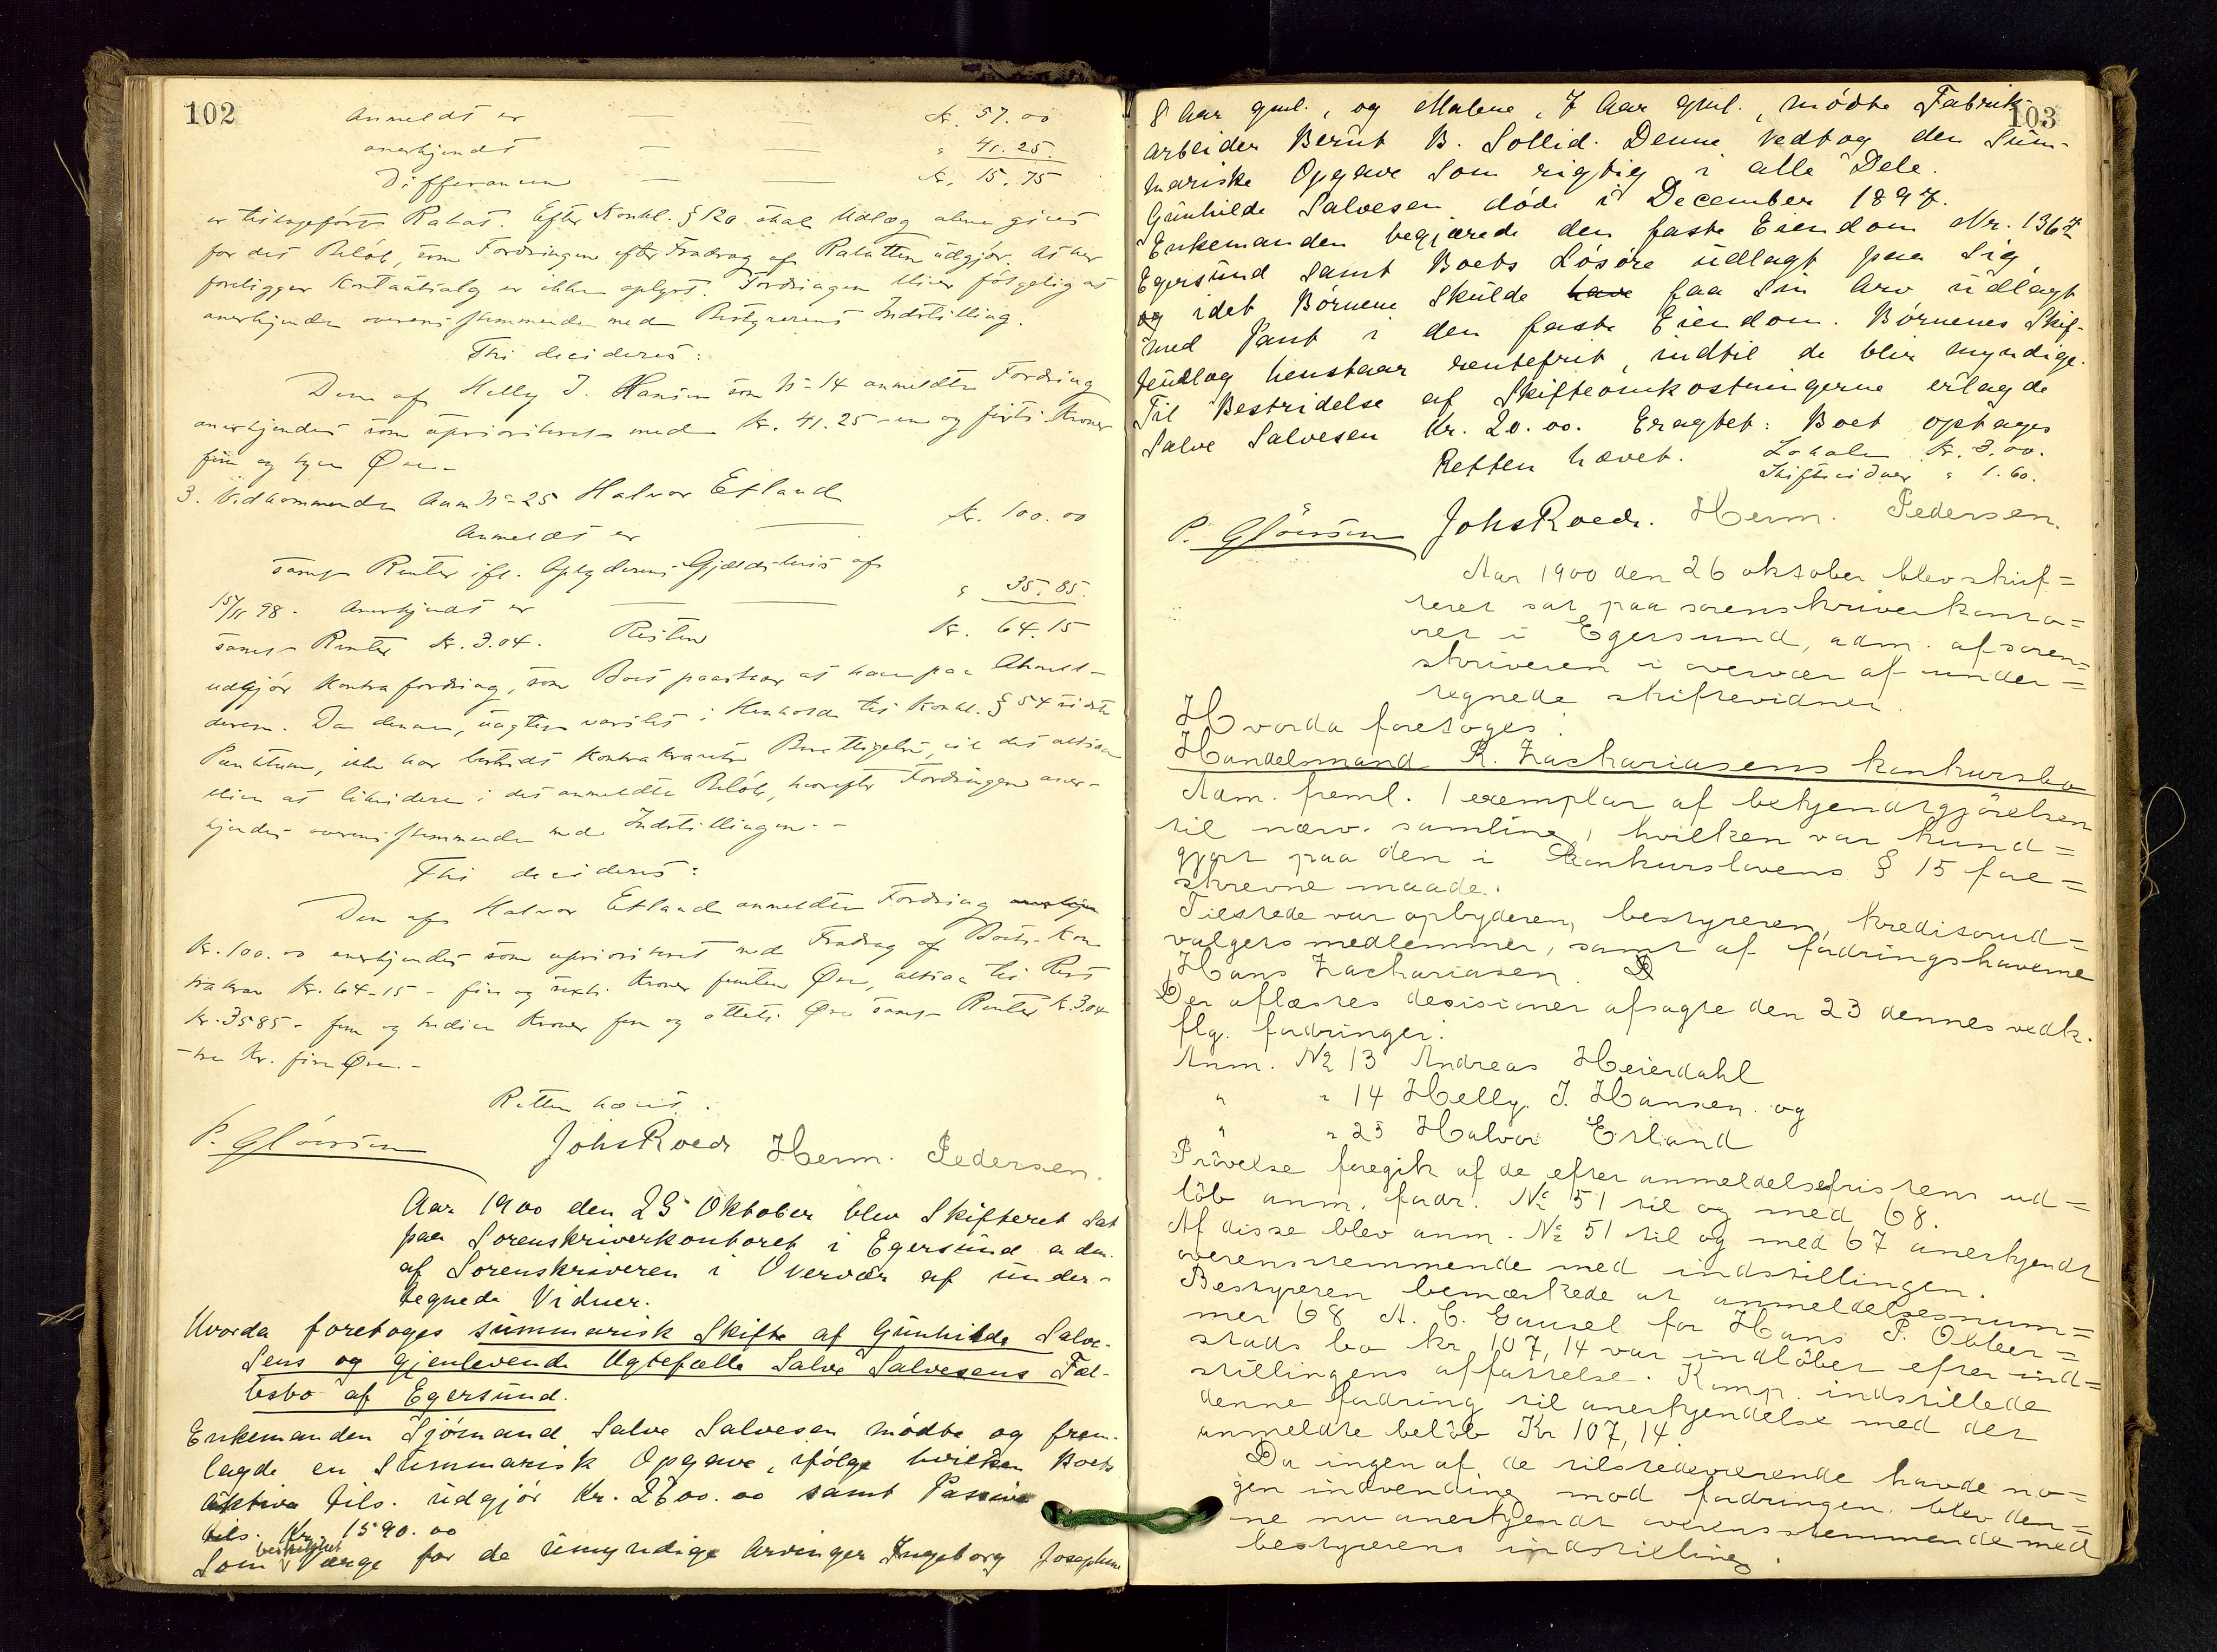 102
Anmeldt er — — Kr. 57.00
anerkjendt — — " 41.25.
Differancen — — Kr. 15.75
er tilbageført Rabat. Efter Konkl. § 120 skal Udlæg alene gives
for det Beløb, som Fordringen efter Fradrag af Rabatten udgjør. At her
foreligger Kontantsalg er ikke oplyst. Fordringen bliver følgelig at
anerkjende overensstemmende med Bestyrerens Indstilling.
Thi decideres:
Den af Helly J. Hansen som No 14 anmeldte Fordring
anerkjendes som uprioriteret med Kr. 41.25 - en og firti Kroner
fem og tyve Øre.-
3. Vedkommende Anm No 25 Halvor Etland
Anmeldt er — Kr. 100.00
samt Renter ifl. Opbyderens Gjældsbevis af
15/11 98. Anerkjendt er — — " 35.85.
samt Renter Kr. 3.04. Resten Kr. 64.15
udgjør Kontrafordring, som Boet paastaar at have paa Anmel-
deren. Da denne, uagtet varslet i Henhold til Konkl. § 54 sidste
Punktum, ikke har bestridt Kontrakravets Berettigelse, vil det altsaa
blive at likvidere i det anmeldte Beløb, hvorefter Fordringen aner-
kjendes overensstemmende med Indstillingen.-
Thi decideres:
Den af Halvor Etland anmeldte Fordring
Kr. 100.00 anerkjendes som uprioriteret med Fradrag af Boets Kon-
trakrav Kr. 64-15 - fire og sexti Kroner femten Øre, altsaa til Rest
Kr. 35 85 - fem og tredive Kroner fem og otteti Øre samt Renter Kr. 3.04
- tre Kr. fire Øre.-
Retten hævet.
P. Gløersen JohsRoed. Herm. Pedersen.
Aar 1900 den 25 Oktober blev Skifteret sat
paa Sorenskriverkontoret i Egersund adm.
af Sorenskriveren i Overvær af under-
tegnede Vidner.
Hvorda foretoges summarisk Skifte af Gunhilde Salve-
sens og gjenlevende Ugtefælle Salve Salvesens Fæl-
lesbo af Egersund.
Enkemanden Sjømand Salve Salvesen mødte og frem-
lagde en summarisk Opgave, ifølge hvilken Boets
Aktiva tils. udgjør Kr. 2700.00 samt Passiva
tils. Kr. 1590.00
Som beskikket Værge for de umyndige Arvinger Ingeborg Josephine
103
8 Aar gml., og Malene, 7 Aar gml., mødte Fabrik-
arbeider Bernt B. Sollid. Denne vedtog den Sum-
mariske Opgave som rigtig i alle Dele.
Gunhilde Salvesen døde i December 1897.
Enkemanden begjærede den faste Eiendom Nr. 136
Egersund samt Boets Løsøre udlagt paa sig,
og idet Børnene skulde have faa sin Arv udlagt
med Pant i den faste Eiendom. Børnenes Skif-
teudlæg henstaar rentefrit, indtil de blir myndige.
Til Bestridelse af Skifteomkostningerne erlagde
Salve Salvesen Kr. 20.00. Eragtet: Boet optages
Retten hævet. Lokale Kr. 3.00.
Skiftevidner " 1.60.
P. Gløersen JohsRoed. Herm. Pedersen.
Aar 1900 den 26 oktober blev skif=
teret sat paa sorenskriverkonto=
ret i Egersund, adm. af soren=
skriveren i overvær af under=
tegnede skiftevidner.
Hvorda foretoges:
Handelsmand R. Zachariasens konkursbo
Adm. freml. 1 exemplar af bekjendtgjørelsen
til nærv. samling, hvilken var kund=
gjort paa den i Konkurslovens § 15 fore=
skrevne maade.
Tilstede var opbyderen, bestyreren, kreditorud=
valgets medlemmer, samt af fordringshaverne
Hans Zachariasen.
Der aflæstes desisioner afsagte den 23 dennes vedk.
flg. fordringer:
Anm. No 13 Andreas Heierdahl
" " 14 Helly. J. Hansen og
" " 25 Halvor Etland
Prøvelse foregik af de efter anmeldelsesfristens ud=
løb anm. fordr. No 51 til og med 68.
Af disse blev anm. No 51 til og med 67 anerkjendt
overensstemmende med indstillingen.
Bestyreren bemærkede at anmeldelsesnum=
mer 68 A. C. Gausel for Hans P. Obber=
stads bo kr 107,14 var indløbet efter ind=
stillingens affattelse. Komp. indstillede
denne fordring til anerkjendelse med det
anmeldte beløb Kr 107,14.
Da ingen af de tilstedeværende havde no=
gen indvending mod fordringen, blev den=
ne nu anerkjendt overensstemmende med
bestyrerens indstilling.